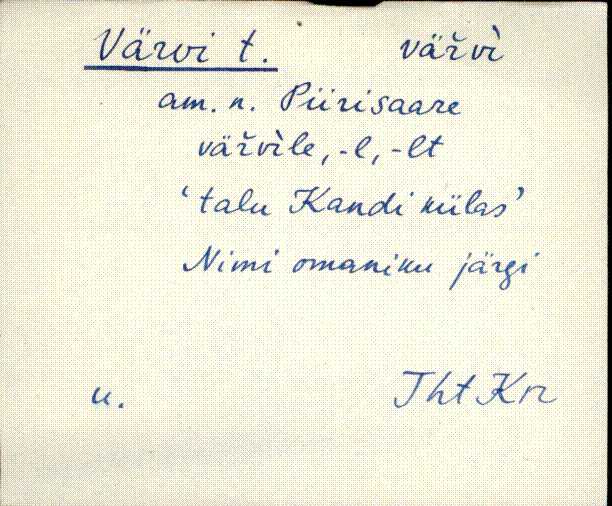 Värvi t. väřvì
am. n. Piirisaare
väřvìle, -l, -lt
‘talu Kandi külas’
Nimi omaniku järgi
u. Jht Krr